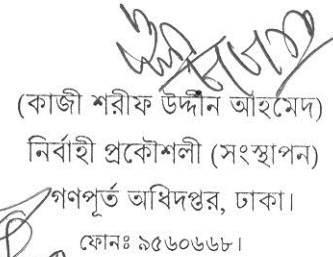 (কাজী শরীফ উদ্দীন আহমেদ)
নির্বাহী প্রকৌশলী (সংস্থাপন)
গণপূর্ত অধিদপ্তর, ঢাকা।
ফোনঃ ৯৫৬০৬৬৮।